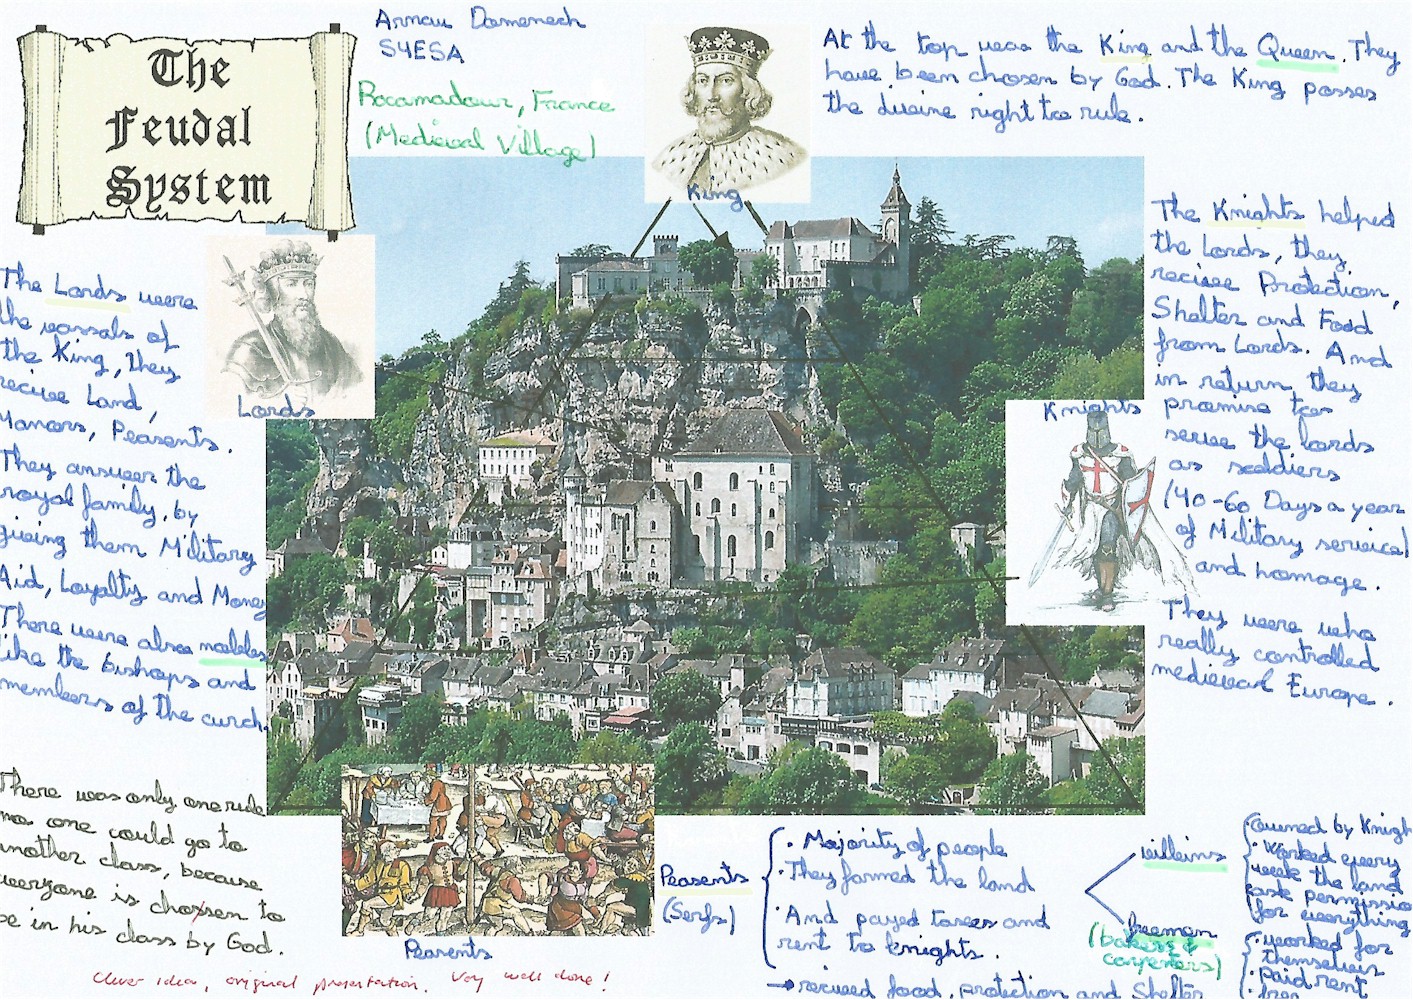 The
Feudal
System
Arnau Domenech
S4ESA
Rocamadour, France
(Medieval Village)
King
At the top was the King and the Queen. They
have been chosen by God. The King posses
the divine right to rule.
Lords
The Lords were
the vassals of
the King, they
recive Land,
Manors, Peasents.
They answer the
royal family, by
giving them Military
Aid, Loyalty and Money
There were also nobles
like the bishops and
members of the curch.
There was only one rule
no one could go to
another class, because
everyone is chossen to
be in his class by God.
Knights
The Knights helped
the Lords, they
recive Protection,
Shelter and Food
from Lords. And
in return they
promise to
serve the lords
as soldiers
(40-60 Days a year
of Military service)
and homage.
They were who
really controlled
medieval Europe.
Peasents
Peasents
(Serfs)
· Majority of people
· They farmed the land
· And payed taxes and
rent to knights.
→ recived food, protection and Shelter
villeins
freeman
(bakers &
carpenters)
owned by Knigh
· Worked every
week the land
ask permissio
for everything
· worked for
themselves
· paid rent
Clever idea, original presentation. Very well done!